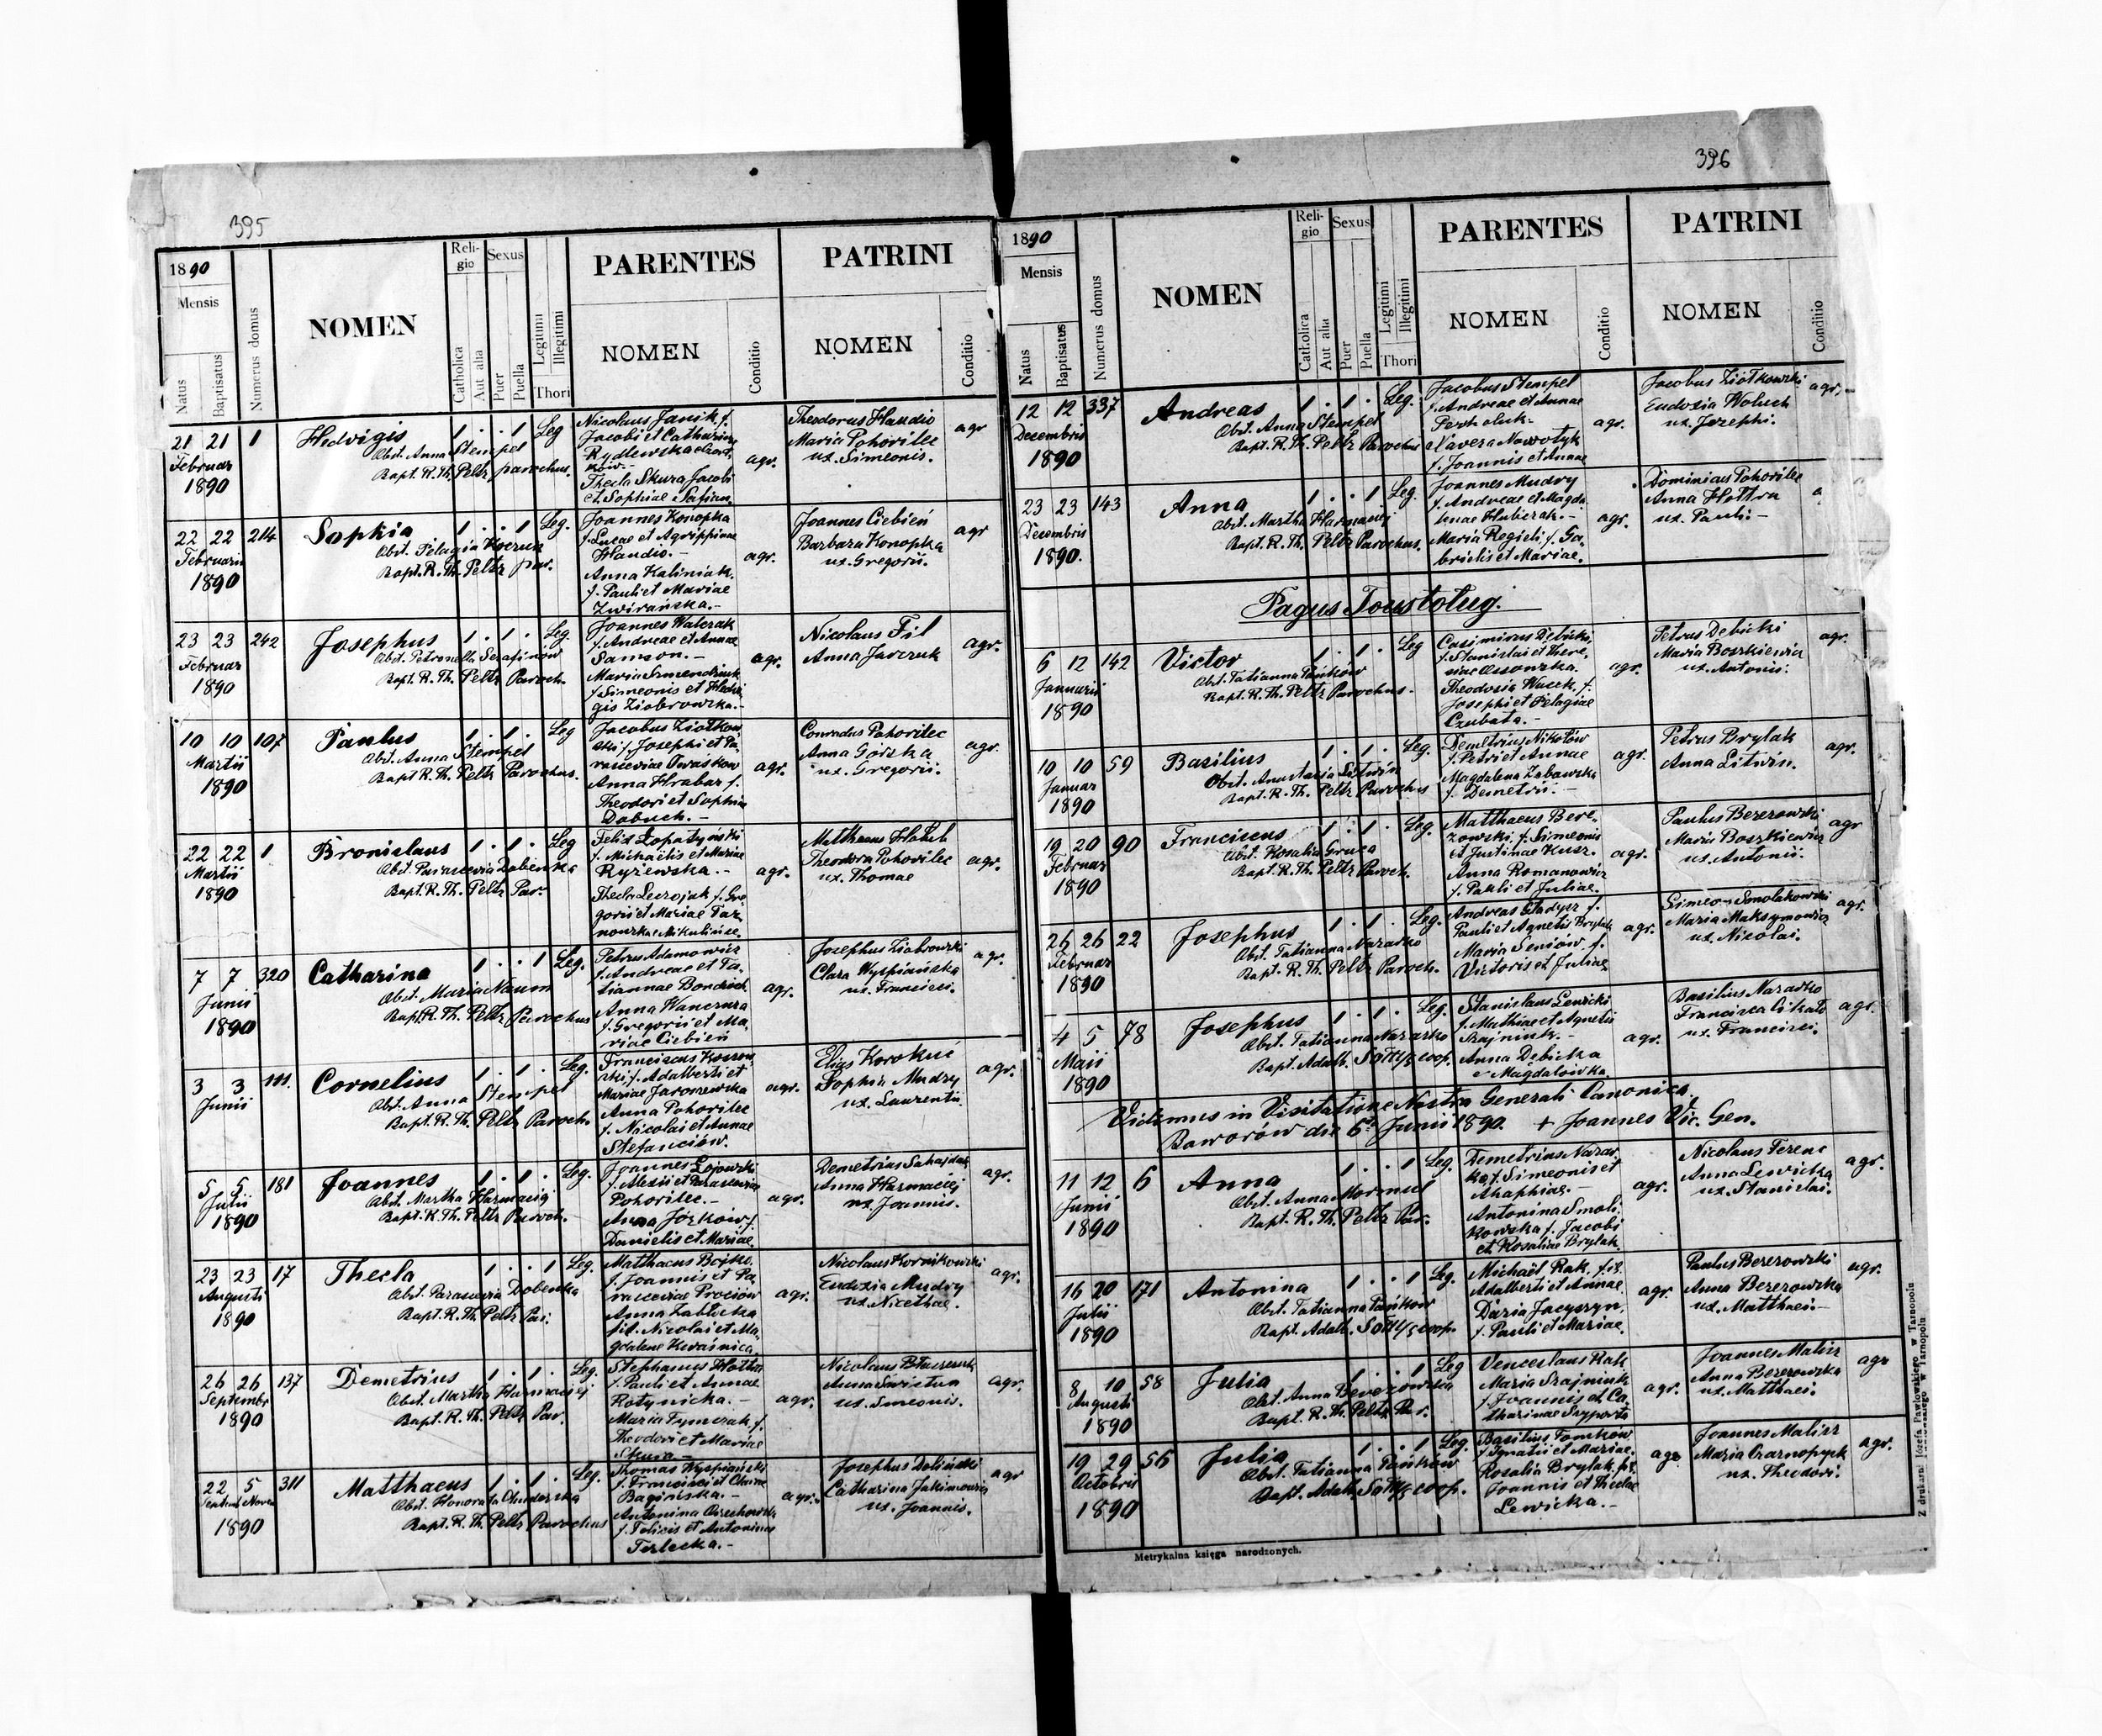 395
1890
Mensis
Natus
Baptisatus
Numerus domus
NOMEN
Reli-
gio
Catholica
Aut alia
Sexus
Puer
Puella
Legitimi
Illegitimi
Thori
PARENTES
NOMEN
Conditio
PATRINI
NOMEN
Conditio
21 21 1 Hedvigis 1 . . 1 Leg
Februar
1890
Obst. Anna Stempel
Bapt. R. Th. Peltz parochus.
Nicolaus Janik f.
Jacobi et Catharinae
Rydlewska
Thecla Skura Jacobi
et Sophiae
agr.
Theodorus Handio
Maria Pohorilec
ux. Simeonis.
agr
22 22 214 Sophia 1 . . 1 Leg.
Februarii
1890
Obst. Pelagia
Bapt. R. Th. Peltz par.
Joannes Konopka
f. Lucae et Agrippinae
Handio. -
Anna Kaliniak.
f. Pauli et Mariae
Zwirańska. -
agr.
Joannes Ciebień
Barbara Konopka
ux. Gregorii.
agr
23 23 242 Josephus 1 . 1 . Leg
Februar
1890
Obst. Petronella Serafinow
Bapt. R. Th. Peltz Paroch.
Joannes Walczak
f. Andreae et Annae
Samson. -
Maria
f. Simeonis et Hedvi
gis Ziobrowska. -
agr.
Nicolaus Fil
Anna Jarczuk
agr.
10 10 107 Paulus 1 . 1 . Leg
Martii
1890
Obst. Anna Stempel
Bapt R. Th. Peltz Parochus.
Jacobus Ziołkow
ski f. Josephi et Pa
rasceviae
Anna Hrabar f.
Theodori et Sophia
Dabuch. -
agr.
Conradus Pohorilec
Anna Górska
ux. Gregorii.
agr.
22 22 1 Bronislaus 1 . 1 . Leg
Martii
1890
Obst. Parascevia Dobenka
Bapt. R. Th. Peltz Par.
Felix Łopatyński
f. Michaelis et Mariae
Ryżewska. -
Thecla f. Gre
gorii et Mariae Tar
nowska
agr.
Matthaeus
Theodora Pohorilec
ux. Thomae
agr.
7 7 320 Catharina 1 . . 1 Leg.
Junii
1890
Obst. Maria Naum
Bapt. R. Th. Peltz Parochus
Petrus Adamowicz
f. Andreae et Ta
tiannae
Anna Wanczura
f. Gregorii et Ma
riae Ciebień
agr.
Josephus Ziabrowski
Clara Wyspiańska
ux. Francisci.
agr.
3 3 111. Cornelius 1 . 1 . Leg.
Junii
Obst. Anna Stempel
Bapt. R. Th. Peltz Paroch.
Franciscus
f. Adalberti et
Mariae Jaroszewska
Anna Pohorilec
f. Nicolai et Annae
Stefanciów.
agr.
Elias Korokuć
Sophia Mudry
ux. Laurentii.
agr.
5 5 181 Joannes 1 . 1 . Leg.
Julii
1890
Obst. Martha Harmacij
Bapt. R. Th. Peltz Paroch.
Joannes Łojowski
f. Alexii et Parasceviae
Pohorilec. -
Anna Jóśków f.
Danielis et Mariae.
agr.
Demetrius Sahajdak
Anna Harmaciej
ux. Joannis.
agr.
23 23 17 Thecla 1 . . 1 Leg.
Augusti
1890
Obst. Parascevia Dobenka
Bapt. R. Th. Peltz Par.
Matthaeus Bojko.
f. Joannis et Pa
rasceviae Prociów
Anna Zablicka
fil. Nicolai et Ma
gdalene Kwaśnica.
agr.
Nicolaus Kornikowski
Eudoxia Mudry
ux. Nicethae.
agr.
26 26 137 Demetrius 1 . 1 . Leg.
Septembr
1890
Obst. Martha Harmaciej
Bapt. R. Th. Peltz Par.
Stephanus Hottra
f. Pauli et Annae
Rotynicka. -
Maria Tymczak f.
Theodori et Mariae
Skura. -
agr.
Nicolaus
Anna Świstun
ux. Simeonis.
agr.
22 5 311 Matthaeus 1 . 1 . Leg.
1890
Obst. Honorata
Bapt. R. Th. Peltz Parochus
Thomas Wyspiański
f. Francisci et
Bagińska. -
Antonina Orzechowska
f. Felicis et Antoninae
Terlecka. -
agr.
Josephus Doliński
Catharina Jakimowicz
ux. Joannis.
agr
396
1890
Mensis
Natus
Baptisatus
Numerus domus
NOMEN
Reli-
gio
Catholica
Aut alia
Sexus
Puer
Puella
Legitimi
Illegitimi
Thori
PARENTES
NOMEN
Conditio
PATRINI
NOMEN
Conditio
12 12 337 Andreas 1 . 1 . Leg.
Decembris
1890
Obst. Anna Stempel
Bapt. R. Th. Peltz Parochus
Jacobus Stempel
f. Andreae et Annae
Xavera Nawrotyk
f. Joannis et Annae
agr.
Jacobus Ziółkowski
Eudoxia Woluch
ux. Josephi.
agr.
23 23 143 Anna 1 . . 1 Leg.
Decembris
1890.
Obst. Martha Harmaciej
Bapt. R. Th. Peltz Parochus.
Joannes Mudry
f. Andreae et Magda
lenae Hubczak. -
Maria f. Ga
brielis et Mariae.
agr.
Dominicus Pohorille
Anna Hottra
ux. Pauli. -
a
Pagus Toustoług.
6 12 142 Victor 1 . 1 . Leg
Januarii
1890
Obst. Tatianna Pańków
Bapt. R. Th. Peltz Parochus.
Casimirus Dębicki,
f. Stanislai et There
siae Ossowska.
Theodosia f.
Josephi et Pelagiae
Czubata. -
agr.
Petrus Dębicki
Maria Boszkiewicz
ux. Antonii.
agr.
10 10 59 Basilius 1 . 1 . Leg.
Januar
1890
Obst. Anastasia Litwin
Bapt. R. Th. Peltz Parochus
Demetrius Nikołów
f. Petri et Annae
Magdalena Zabawska
f. Demetrii. -
agr.
Petrus Brylak
Anna Litwin.
agr.
19 20 90 Franciscus 1 . 1 . Leg.
Februar
1890
Obst. Rosalia Gruca
Bapt. R. Th. Peltz Paroch.
Matthaeus Bere-
zowski f. Simeonis
et Justinae Kusz.
Anna Romanowicz
f. Pauli et Juliae.
agr.
Paulus Berezowski
Maria Boszkiewicz
ux. Antonii.
agr
26 26 22 Josephus 1 . 1 . Leg.
Februar
1890
Obst. Tatianna Nazarko
Bapt. R. Th. Peltz Paroch.
Andreas Gładysz f.
Pauli et Agnetis Brylak
Maria Seniów f.
Victoris et Juliae
agr.
Simeon Smolakowski
Maria Maksymowicz
ux. Nicolai.
agr.
4 5 78 Josephus 1 . 1 . Leg.
Maii
1890
Obst. Tatianna Nazarko
Bapt. Adalb. Sołtys coop.
Stanislaus Lewicki
f. Mathiae et Agnetis
Szajniuk. -
Anna Dębicka
e Magdalówka.
agr.
Basilius Nazarko
Francisca
ux. Francisci.
agr.
Vidimus in Visitatione Nostra Generali Canonica.
Baworów die 6ta Junii 1890. + Joannes Vic. Gen.
11 12 6 Anna 1 . . 1 Leg.
Junii
1890
Obst. Anna Mormul
Bapt. R. Th. Peltz Par.
Demetrius Nazar
ko f. Simeonis et
Ahaphiae. -
Antonina Smoli
kowska f. Jacobi
et Rosaliae Brylak.
agr.
Nicolaus Ferenc
Anna Lewicka
ux. Stanislai.
agr.
16 20 171 Antonina 1 . . 1 Leg.
Julii
1890
Obst. Tatianna Pańkow
Bapt. Adalb. Sołtys coop.
Michael Rak, fil.
Adalberti et Annae
Daria Jacyszyn,
f. Pauli et Mariae.
agr.
Paulus Berezowski
Anna Berezowska
ux. Matthaei. -
agr.
8 10 58 Julia 1 . . 1 Leg
Augusti
1890
Obst. Anna Berezowska
Bapt. R. Th. Peltz Par.
Venceslaus Rak
Maria Szajniuk
f. Joannis et Ca
tharinae
agr.
Joannes Malisz
Anna Berezowska
ux. Matthaei.
agr
19 29 56 Julia 1 . . 1 Leg.
Octobris
1890
Obst. Tatianna Pańkow
Bapt. Adalb. Sołtys coop.
Basilius Tomków
f. Ignatii et Mariae.
Rosalia Brylak, fil.
Joannis et Theclae
Lewicka. -
agr
Joannes Malisz
Maria Czarnopyck
ux. Theodori.
agr.
Metrykalna księga narodzonych.
Z drukarni Józefa Pawłowskiego w Tarnopolu